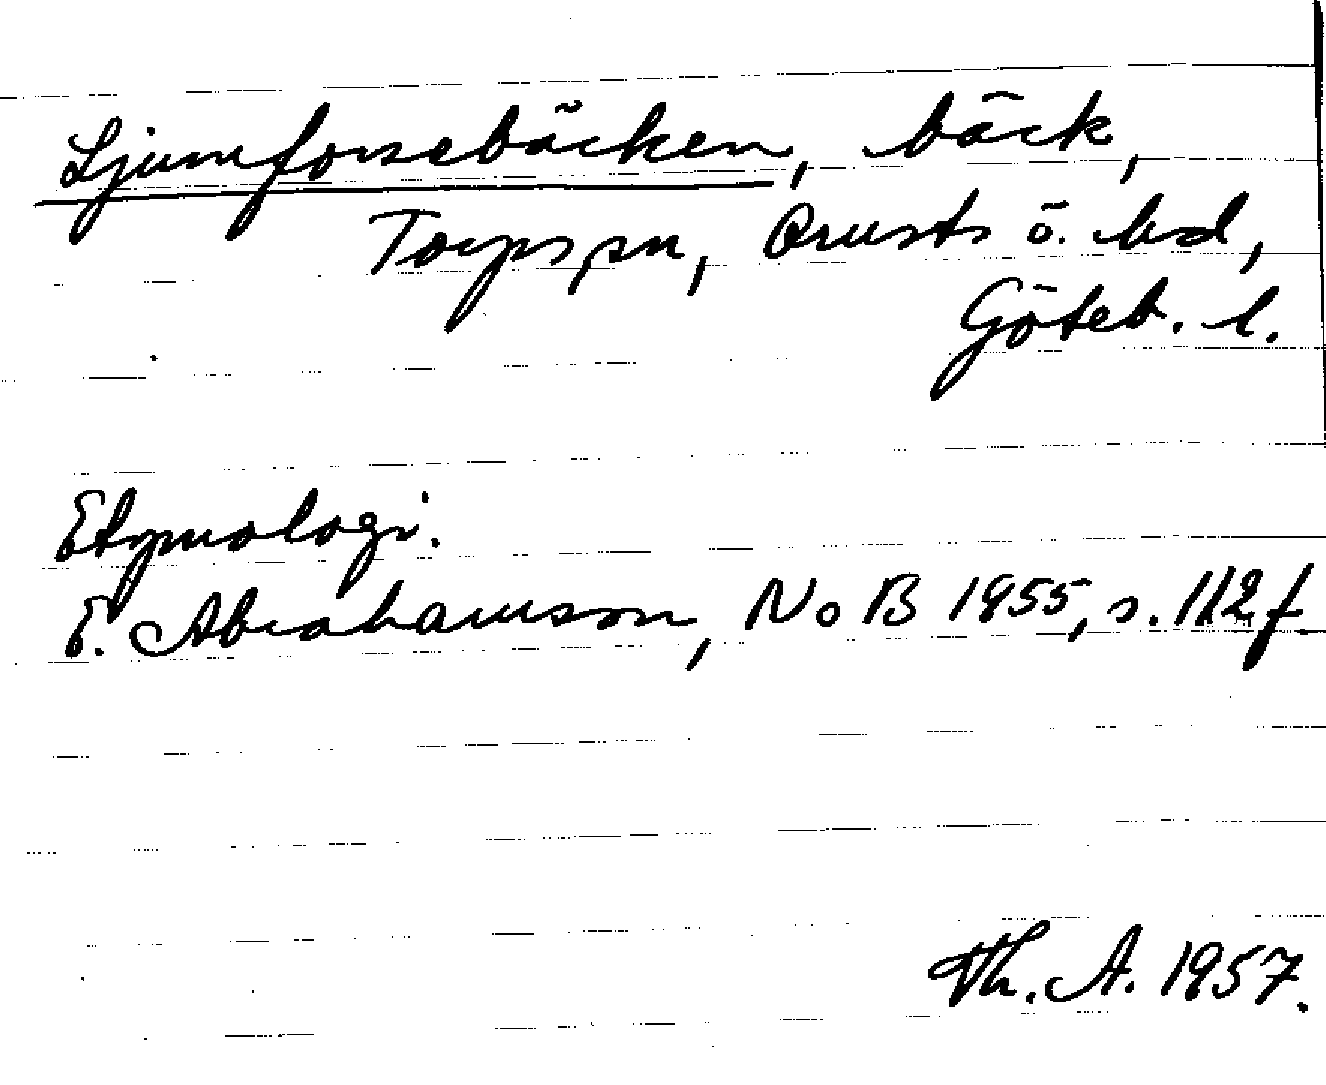 Ljumforsebäcken, bäck,
Torps sn, Orusts ö. hd,
Göteb. l.
Etymologi.
E. Abrahamson, NoB 1955, s. 112 f
Th. A. 1957.